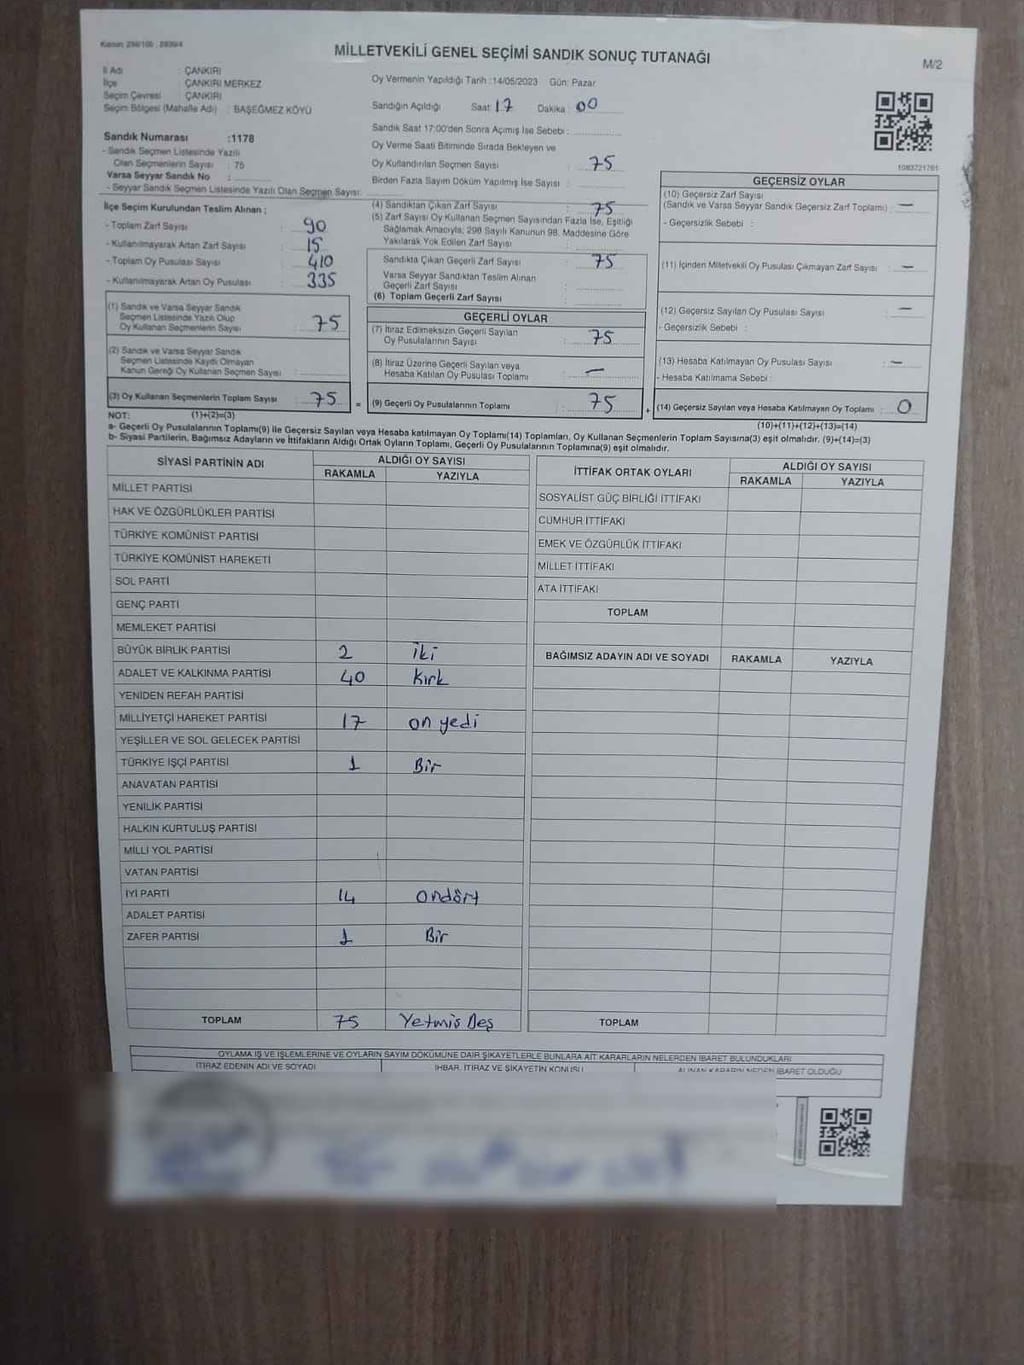 MİLLETVEKİLİ GENEL SEÇİMİ SANDIK SONUÇ TUTANAĞI
M/2
İl Adı : ÇANKIRI
İlçe : ÇANKIRI MERKEZ
Seçim Çevresi : ÇANKIRI
Seçim Bölgesi (Mahalle Adı) : BAŞEĞMEZ KÖYÜ
Sandık Numarası :1178
- Sandık Seçmen Listesinde Yazılı
Olan Seçmenlerin Sayısı : 75
Varsa Seyyar Sandık No :
- Seyyar Sandık Seçmen Listesinde Yazılı Olan Seçmen Sayısı:
Oy Vermenin Yapıldığı Tarih :14/05/2023 Gün: Pazar
Sandığın Açıldığı Saat 17 Dakika : 00
Sandık Saat 17:00'den Sonra Açımış İse Sebebi :
Oy Verme Saati Bitiminde Sırada Bekleyen ve
Oy Kullandırılan Seçmen Sayısı : 75
Birden Fazla Sayım Döküm Yapılmış İse Sayısı :
1083221761
İlçe Seçim Kurulundan Teslim Alınan ;
- Toplam Zarf Sayısı : 90
- Kullanılmayarak Artan Zarf Sayısı : 15
- Toplam Oy Pusulası Sayısı : 410
- Kullanılmayarak Artan Oy Pusulası : 335
(1) Sandık ve Varsa Seyyar Sandık
Seçmen Listesinde Yazılı Olup
Oy Kullanan Seçmenlerin Sayısı : 75
(2) Sandık ve Varsa Seyyar Sandık
Seçmen Listesinde Kaydı Olmayan
Kanun Gereği Oy Kullanan Seçmen Sayısı :
(3) Oy Kullanan Seçmenlerin Toplam Sayısı : 75 =
NOT: (1)+(2)=(3)
(4) Sandıktan Çıkan Zarf Sayısı : 75
(5) Zarf Sayısı Oy Kullanan Seçmen Sayısından Fazla İse, Eşitliği
Sağlamak Amacıyla, 298 Sayılı Kanunun 98. Maddesine Göre
Yakılarak Yok Edilen Zarf Sayısı :
Sandıkta Çıkan Geçerli Zarf Sayısı : 75
Varsa Seyyar Sandıktan Teslim Alınan
Geçerli Zarf Sayısı :
(6) Toplam Geçerli Zarf Sayısı :
GEÇERLİ OYLAR
(7) İtiraz Edilmeksizin Geçerli Sayılan
Oy Pusulalarının Sayısı : 75
(8) İtiraz Üzerine Geçerli Sayılan veya
Hesaba Katılan Oy Pusulası Toplamı : —
(9) Geçerli Oy Pusulalarının Toplamı : 75 +
GEÇERSİZ OYLAR
(10) Geçersiz Zarf Sayısı
(Sandık ve Varsa Seyyar Sandık Geçersiz Zarf Toplamı) : —
- Geçersizlik Sebebi :
(11) İçinden Milletvekili Oy Pusulası Çıkmayan Zarf Sayısı : —
(12) Geçersiz Sayılan Oy Pusulası Sayısı : —
- Geçersizlik Sebebi :
(13) Hesaba Katılmayan Oy Pusulası Sayısı : —
- Hesaba Katılmama Sebebi :
(14) Geçersiz Sayılan veya Hesaba Katılmayan Oy Toplamı : 0
(10)+(11)+(12)+(13)=(14)
a- Geçerli Oy Pusulalarının Toplamı(9) ile Geçersiz Sayılan veya Hesaba katılmayan Oy Toplamı(14) Toplamları, Oy Kullanan Seçmenlerin Toplam Sayısına(3) eşit olmalıdır. (9)+(14)=(3)
b- Siyasi Partilerin, Bağımsız Adayların ve İttifakların Aldığı Ortak Oyların Toplamı, Geçerli Oy Pusulalarının Toplamına(9) eşit olmalıdır.
SİYASİ PARTİNİN ADI ALDIĞI OY SAYISI
RAKAMLA YAZIYLA
MİLLET PARTİSİ
HAK VE ÖZGÜRLÜKLER PARTİSİ
TÜRKİYE KOMÜNİST PARTİSİ
TÜRKİYE KOMÜNİST HAREKETİ
SOL PARTİ
GENÇ PARTİ
MEMLEKET PARTİSİ
BÜYÜK BİRLİK PARTİSİ 2 iki
ADALET VE KALKINMA PARTİSİ 40 Kırk
YENİDEN REFAH PARTİSİ
MİLLİYETÇİ HAREKET PARTİSİ 17 on yedi
YEŞİLLER VE SOL GELECEK PARTİSİ
TÜRKİYE İŞÇİ PARTİSİ 1 Bir
ANAVATAN PARTİSİ
YENİLİK PARTİSİ
HALKIN KURTULUŞ PARTİSİ
MİLLİ YOL PARTİSİ
VATAN PARTİSİ
İYİ PARTİ 14 Ondört
ADALET PARTİSİ
ZAFER PARTİSİ 1 Bir
TOPLAM 75 Yetmiş Beş
İTTİFAK ORTAK OYLARI ALDIĞI OY SAYISI
RAKAMLA YAZIYLA
SOSYALİST GÜÇ BİRLİĞİ İTTİFAKI
CUMHUR İTTİFAKI
EMEK VE ÖZGÜRLÜK İTTİFAKI
MİLLET İTTİFAKI
ATA İTTİFAKI
TOPLAM
BAĞIMSIZ ADAYIN ADI VE SOYADI RAKAMLA YAZIYLA
TOPLAM
OYLAMA İŞ VE İŞLEMLERİNE VE OYLARIN SAYIM DÖKÜMÜNE DAİR ŞİKAYETLERLE BUNLARA AİT KARARLARIN NELERDEN İBARET BULUNDUKLARI
İTİRAZ EDENİN ADI VE SOYADI İHBAR, İTİRAZ VE ŞİKAYETİN KONUSU ALINAN KARARIN NEDEN İBARET OLDUĞU